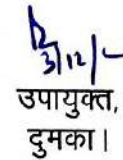 3/12/
उपायुक्त,
दुमका।